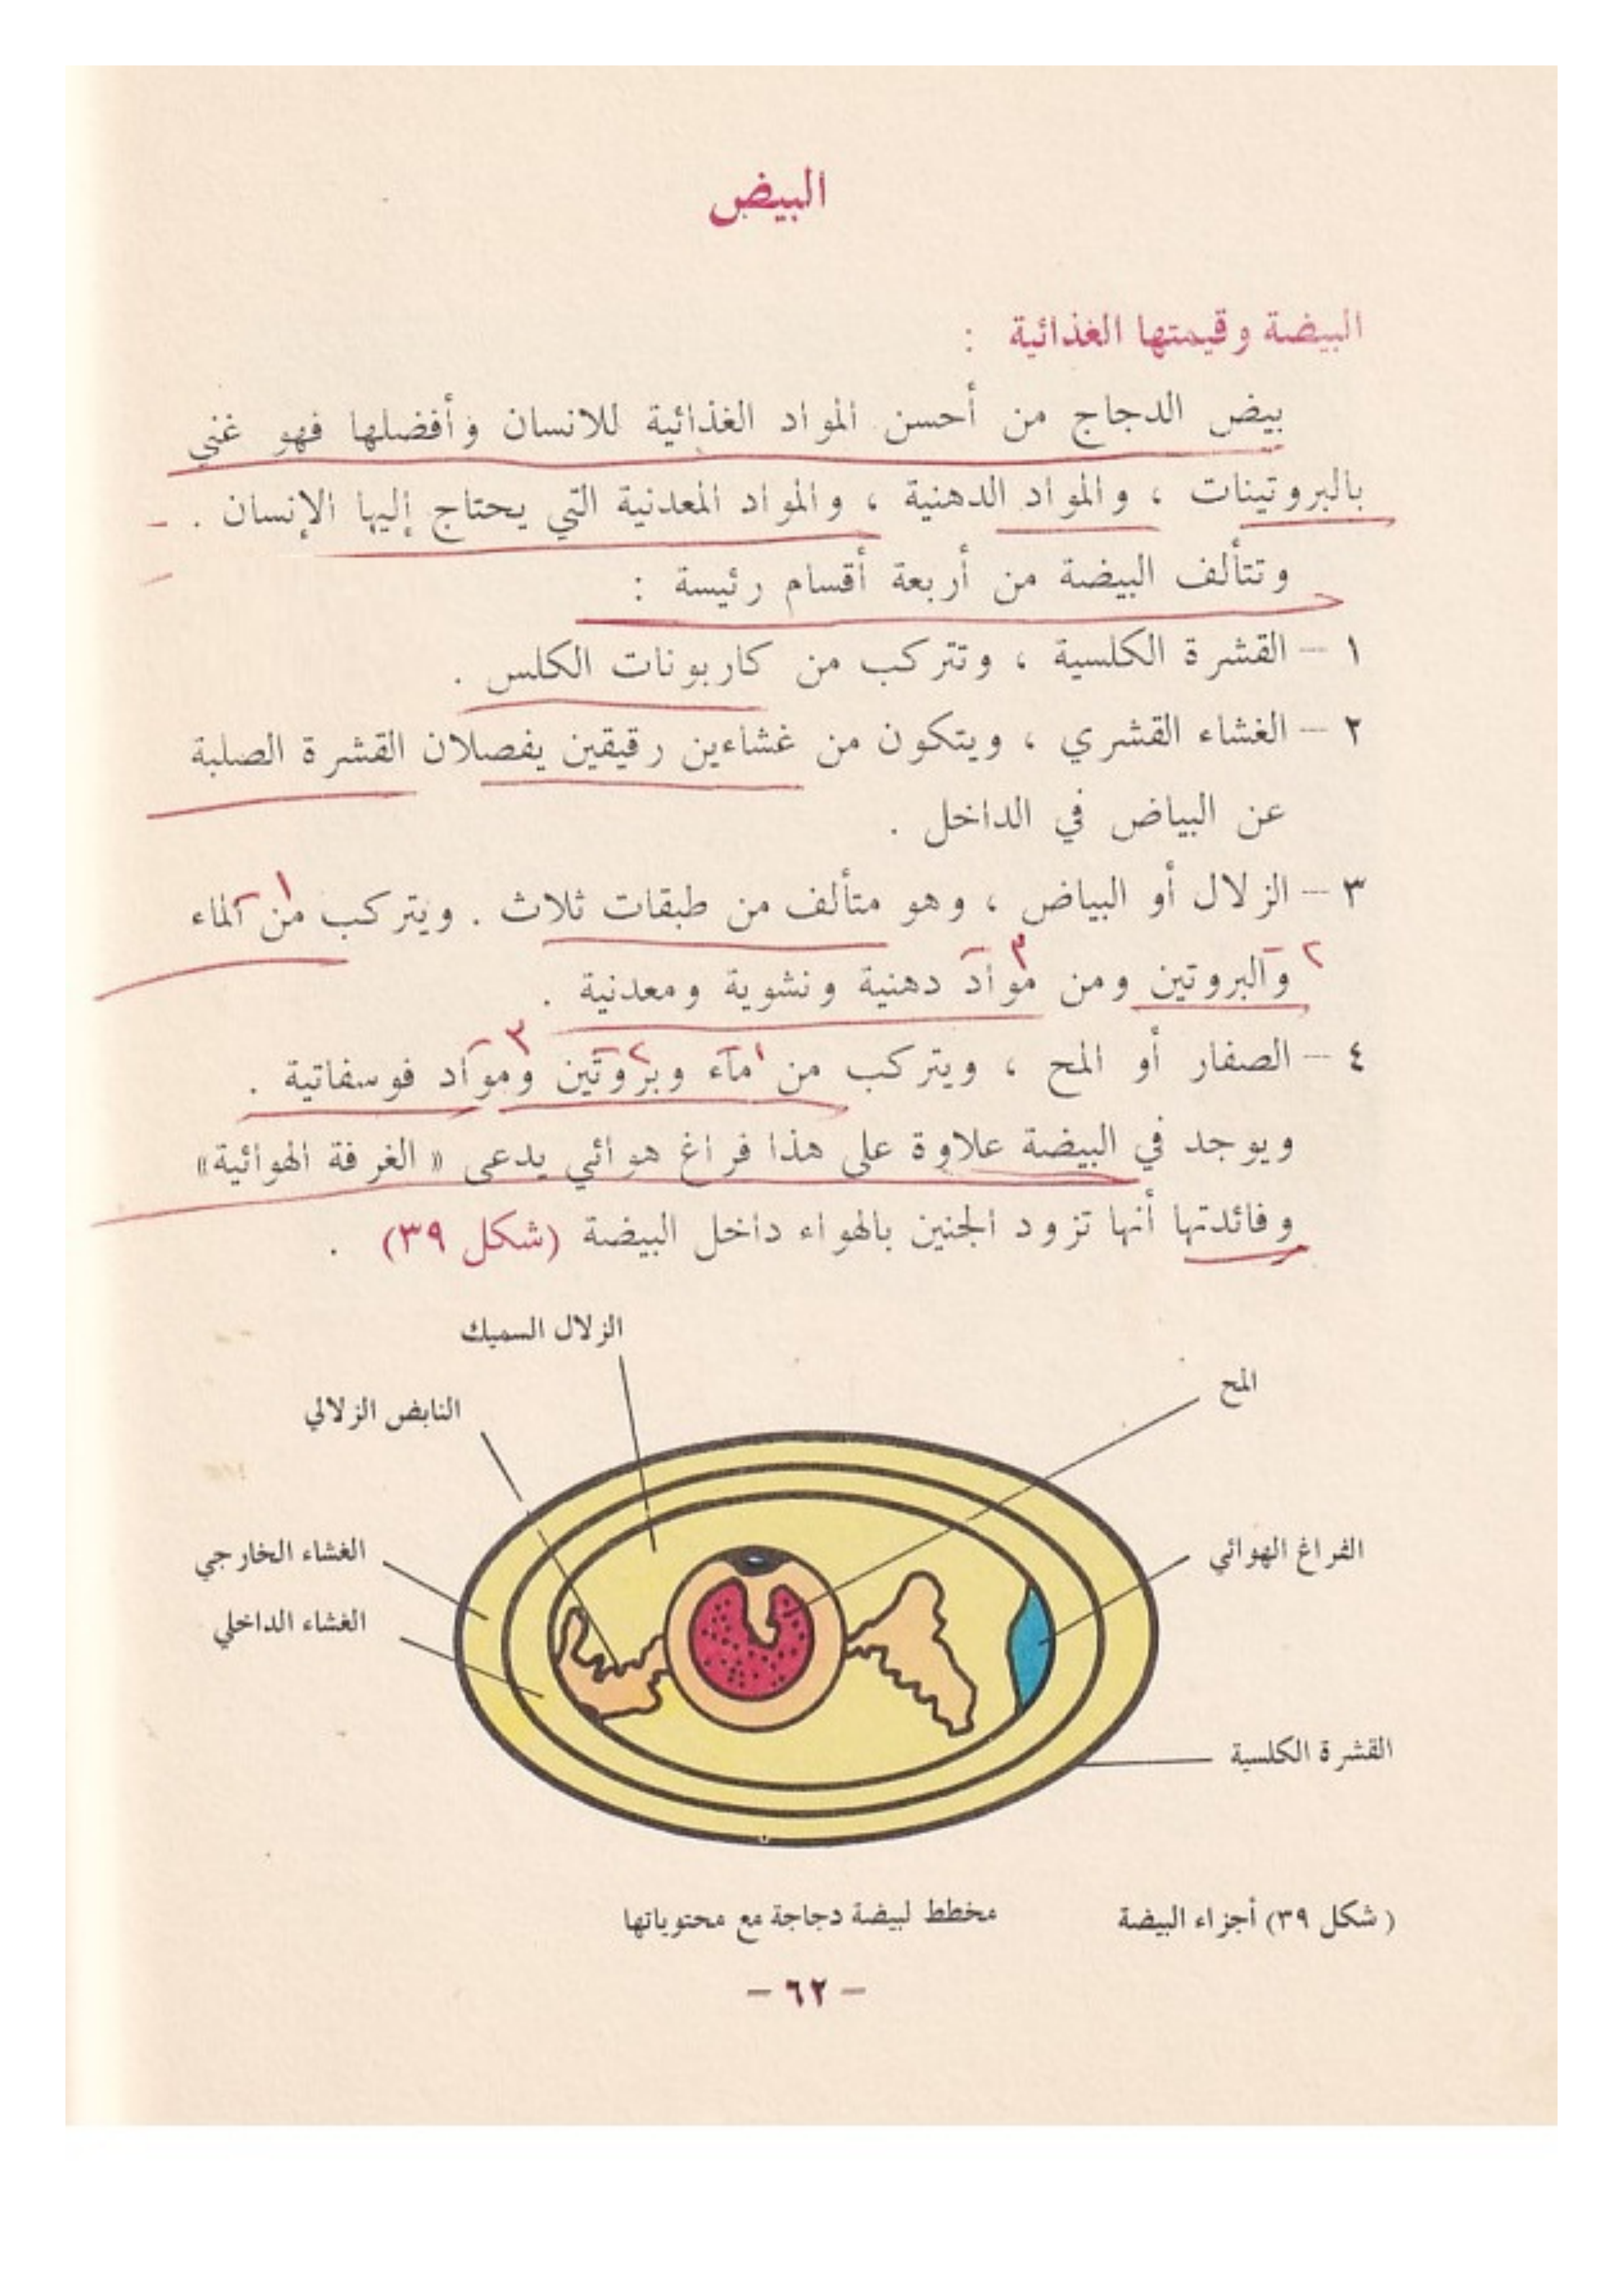 البيض
البيضة وقيمتها الغذائية :
بيض الدجاج من أحسن المواد الغذائية للانسان وأفضلها فهو غني
بالبروتينات ، والمواد الدهنية ، والمواد المعدنية التي يحتاج إليها الإنسان .
وتتألف البيضة من أربعة أقسام رئيسة :
١ – القشرة الكلسية ، وتتركب من كاربونات الكلس .
٢ – الغشاء القشري ، ويتكون من غشاءين رقيقين يفصلان القشرة الصلبة
عن البياض في الداخل .
٣ – الزلال أو البياض ، وهو متألف من طبقات ثلاث . ويتركب من الماء
والبروتين ومن مواد دهنية ونشوية ومعدنية .
٤ – الصفار أو المح ، ويتركب من ماء وبروتين ومواد فوسفاتية .
ويوجد في البيضة علاوة على هذا فراغ هوائي يدعى « الغرفة الهوائية»
وفائدتها أنها تزود الجنين بالهواء داخل البيضة (شكل ٣٩) .
الزلال السميك
المح
النابض الزلالي
الفراغ الهوائي
الغشاء الخارجي
الغشاء الداخلي
القشرة الكلسية
(شكل ٣٩) أجزاء البيضة
مخطط لبيضة دجاجة مع محتوياتها
– ٦٢ –